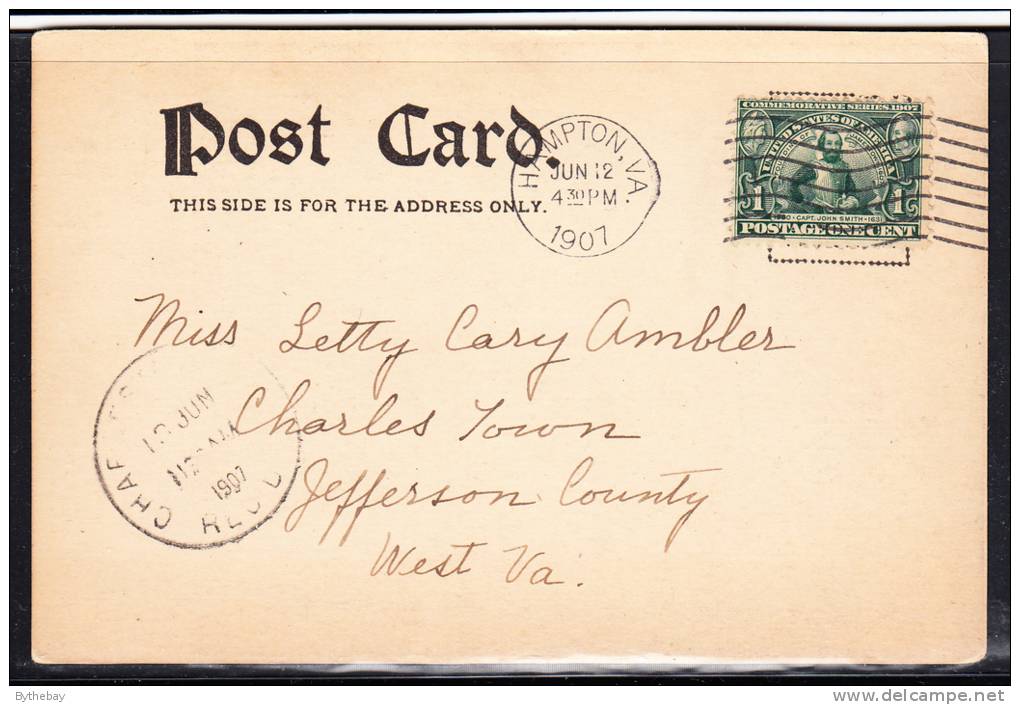 Post Card.
THIS SIDE IS FOR THE ADDRESS ONLY.
HAMPTON, VA.
JUN 12
4 30 PM
1907
COMMEMORATIVE SERIES 1907
UNITED STATES OF AMERICA
1 1
CAPT. JOHN SMITH · 1631
POSTAGE ONE CENT
Miss Letty Cary Ambler
Charles Town
Jefferson County
West Va.
JUN
1907
Bythebay
www.delcampe.net